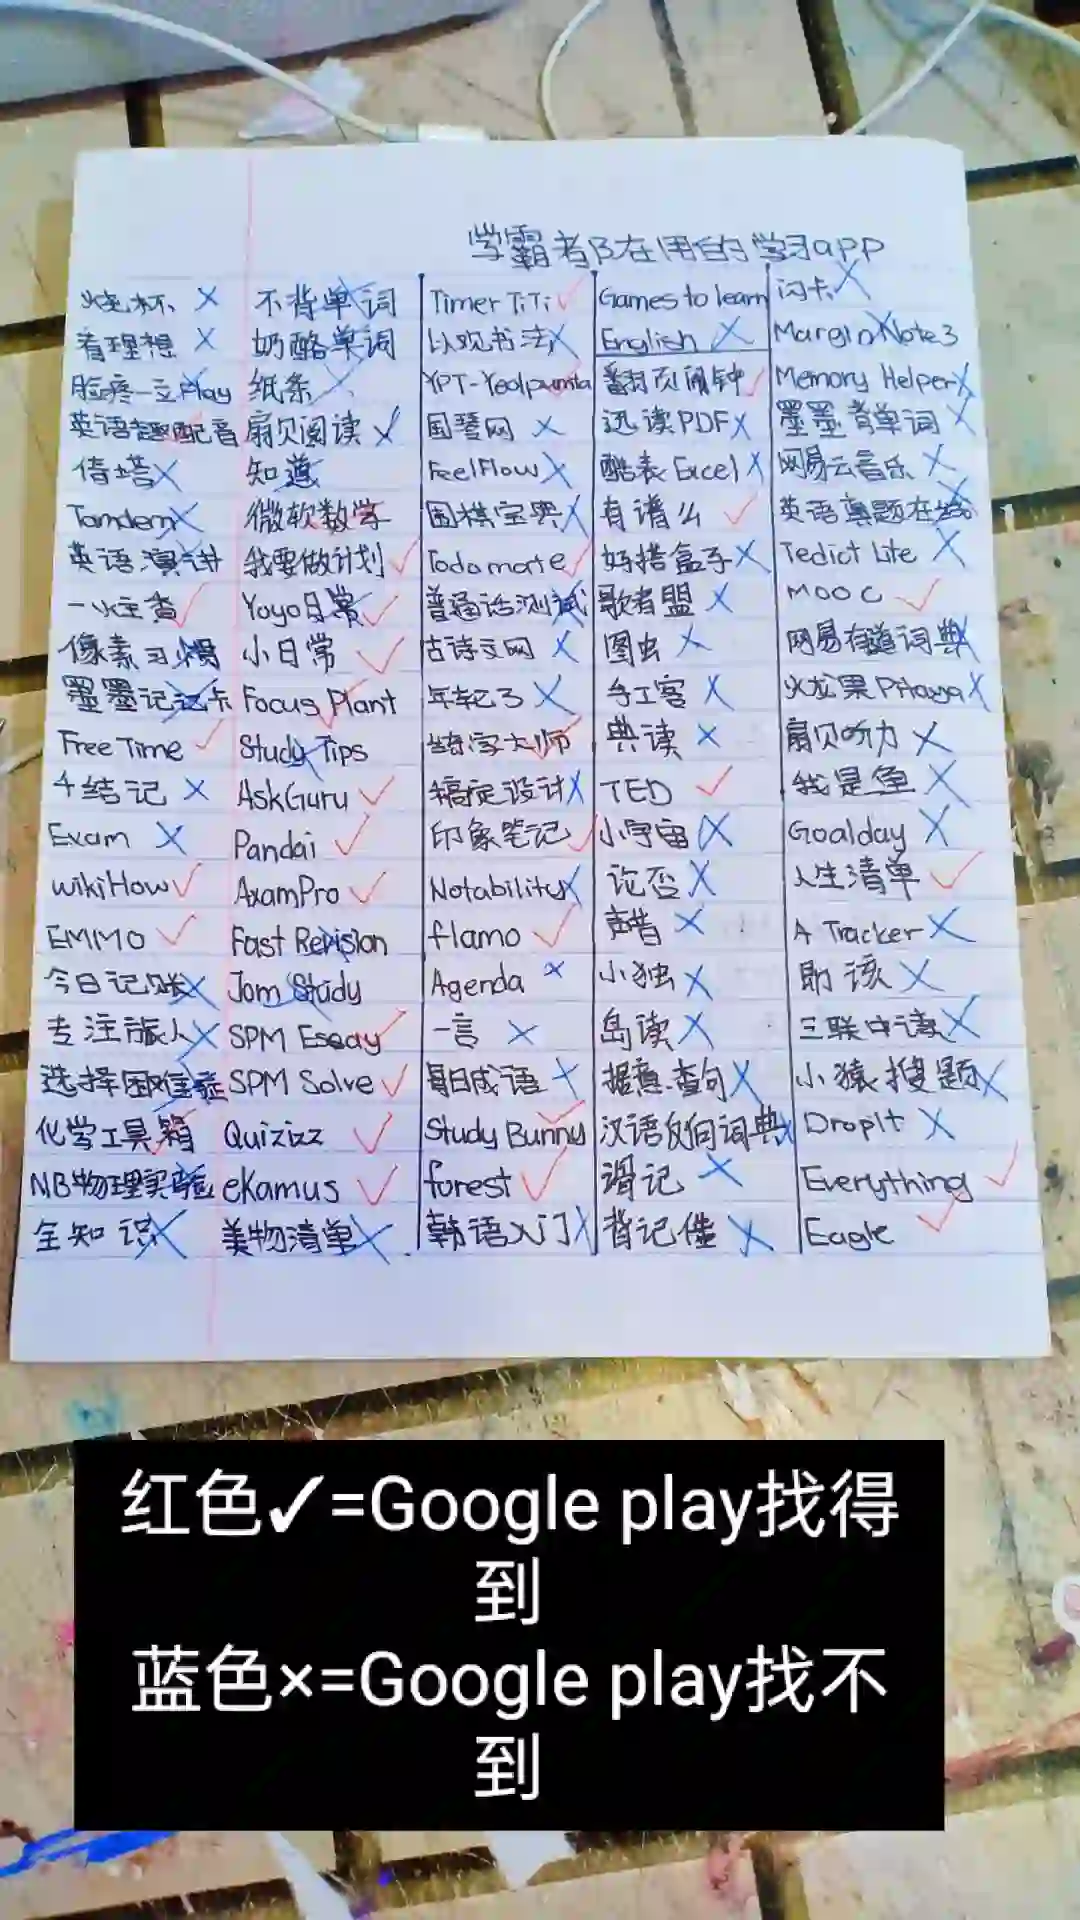 学霸者都在用的学习app
烧杯 × 不背单词 Timer TiTi ✓ Games to learn 闪卡 ×
看理想 × 奶酪单词 以观书法 × English × MarginNote3
脸疼一立Play 纸条 YPT-Yeolpumta 翻页闹钟 ✓ Memory Helper ×
英语趣配音 扇贝阅读 × 国琴网 × 迅读PDF × 墨墨背单词 ×
倚塔 × 知道 FeelFlow × 酷表Excel × 网易云音乐 ×
Tandem × 微软数学 围棋宝典 × 有谱么 ✓ 英语真题在线
英语演讲 我要做计划 ✓ Todo mate ✓ 好搭盒子 × Tedict Lite ×
一火主查 ✓ Yoyo日常 ✓ 普通话测试 歌者盟 × MOOC ✓
像素习惯 小日常 ✓ 古诗文网 × 图虫 × 网易有道词典
墨墨记记卡 Focus Plant 年轮3 × 手工客 × 火龙果Pitaya ×
Free Time ✓ Study Tips 练字大师 典读 × 扇贝听力 ×
个结记 × AskGuru ✓ 稿定设计 × TED ✓ 我是鱼 ×
Exam × Pandai ✓ 印象笔记 ✓ 小宇宙 × Goalday ×
wikiHow ✓ AxamPro ✓ Notability × 论否 × 人生清单 ✓
EMMO ✓ Fast Revision flamo ✓ 声昔 × A Tracker ×
今日记账 × Jom Study Agenda × 小独 × 助该 ×
专注旅人 × SPM Essay ✓ 一言 × 岛读 × 三联中读 ×
选择困难症 SPM Solve ✓ 每日成语 × 据意查句 × 小猿搜题 ×
化学工具箱 Quizizz ✓ Study Bunny 汉语反向词典 × DropIt ×
NB物理实验 eKamus ✓ forest ✓ 谓记 × Everything ✓
全知识 × 美物清单 × 韩语入门 × 背记催 × Eagle ✓
红色✓=Google play找得
到
蓝色×=Google play找不
到